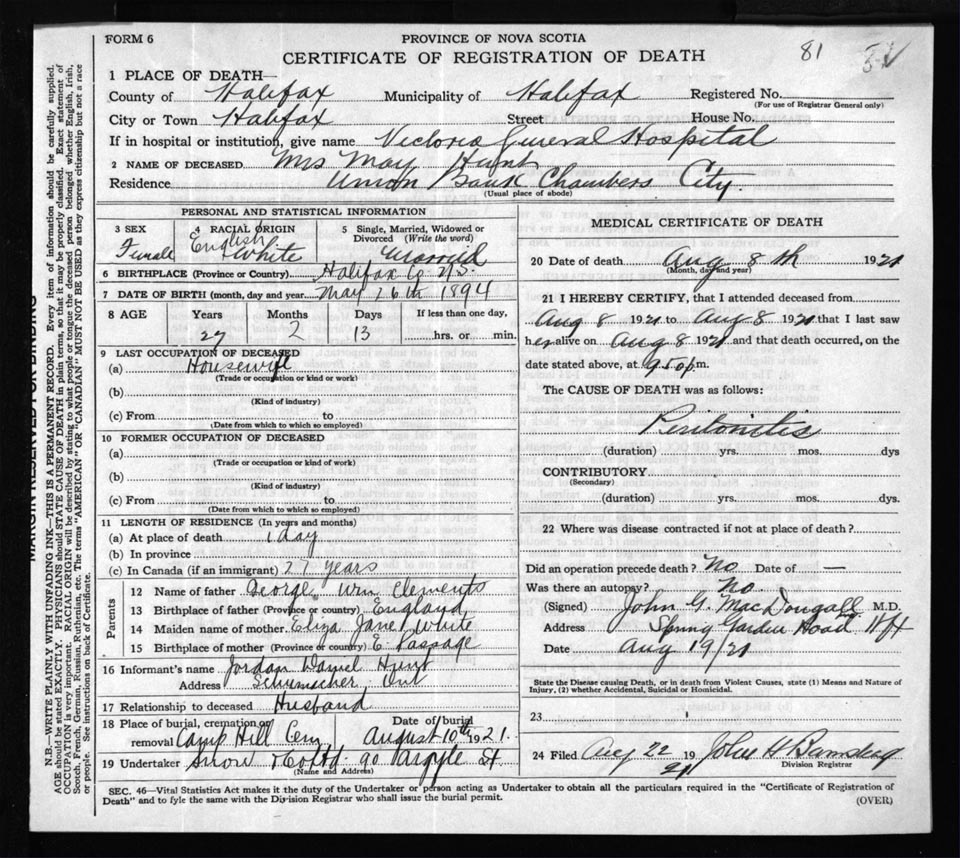 FORM 6
PROVINCE OF NOVA SCOTIA
81
CERTIFICATE OF REGISTRATION OF DEATH
1 PLACE OF DEATH—
County of Halifax Municipality of Halifax Registered No.
(For use of Registrar General only)
City or Town Halifax Street House No.
If in hospital or institution, give name Victoria General Hospital
2 NAME OF DECEASED Mrs May Hunt
Residence Union Bank Chambers City.
(Usual place of abode)
PERSONAL AND STATISTICAL INFORMATION
3 SEX
Female
4 RACIAL ORIGIN
English
White
5 Single, Married, Widowed or
Divorced (Write the word)
Married
6 BIRTHPLACE (Province or Country) Halifax Co N.S.
7 DATE OF BIRTH (month, day and year) May 26th 1894
8 AGE Years Months Days If less than one day,
27 2 13 hrs. or min.
9 LAST OCCUPATION OF DECEASED
(a) Housewife
(Trade or occupation or kind or work)
(b)
(Kind of industry)
(c) From to
(Date from which to which so employed)
10 FORMER OCCUPATION OF DECEASED
(a)
(Trade or occupation or kind of work)
(b)
(Kind of industry)
(c) From to
(Date from which to which so employed)
11 LENGTH OF RESIDENCE (In years and months)
(a) At place of death 1 day
(b) In province
(c) In Canada (if an immigrant) 27 years
Parents
12 Name of father George Wm Clements
13 Birthplace of father (Province or country) England
14 Maiden name of mother Eliza Jane White
15 Birthplace of mother (Province or country) E Passage
16 Informant's name Jordan Daniel Hunt
Address Schumacher Ont
17 Relationship to deceased Husband
18 Place of burial, cremation or
removal Camp Hill Cem
Date of burial
August 10th 1921.
19 Undertaker Snow & Co Ltd. 90 Argyle St.
(Name and Address)
MEDICAL CERTIFICATE OF DEATH
20 Date of death Aug 8th 1921
(Month, day and year)
21 I HEREBY CERTIFY, that I attended deceased from
Aug 8 1921 to Aug 8 1921 that I last saw
her alive on Aug 8 1921 and that death occurred, on the
date stated above, at 9.50 p.m.
The CAUSE OF DEATH was as follows:
Peritonitis
(duration) yrs. mos. dys
CONTRIBUTORY
(Secondary)
(duration) yrs. mos. dys.
22 Where was disease contracted if not at place of death?
Did an operation precede death? No Date of —
Was there an autopsy? No.
(Signed) John G. MacDougall M.D.
Address Spring Garden Road Hfx
Date Aug 19/21
State the Disease causing Death, or in death from Violent Causes, state (1) Means and Nature of
Injury, (2) whether Accidental, Suicidal or Homicidal.
23
24 Filed Aug 22 19 21 John H Barnstead
Division Registrar
SEC. 46—Vital Statistics Act makes it the duty of the Undertaker or person acting as Undertaker to obtain all the particulars required in the "Certificate of Registration of
Death" and to fyle the same with the Division Registrar who shall issue the burial permit.
(OVER)
MARGIN RESERVED FOR BINDING
N.B.—WRITE PLAINLY WITH UNFADING INK—THIS IS A PERMANENT RECORD. Every item of information should be carefully supplied.
AGE should be stated EXACTLY. PHYSICIANS should STATE CAUSE OF DEATH in plain terms, so that it may be properly classified. Exact statement of
OCCUPATION is very important. RACIAL ORIGIN will be described by stating to what people or tongue the deceased person belonged whether English, Irish,
Scotch, French, German, Russian, Ruthenian, etc. The terms "AMERICAN" OR "CANADIAN" MUST NOT BE USED as they express citizenship but not a race
or people. See instructions on back of Certificate.